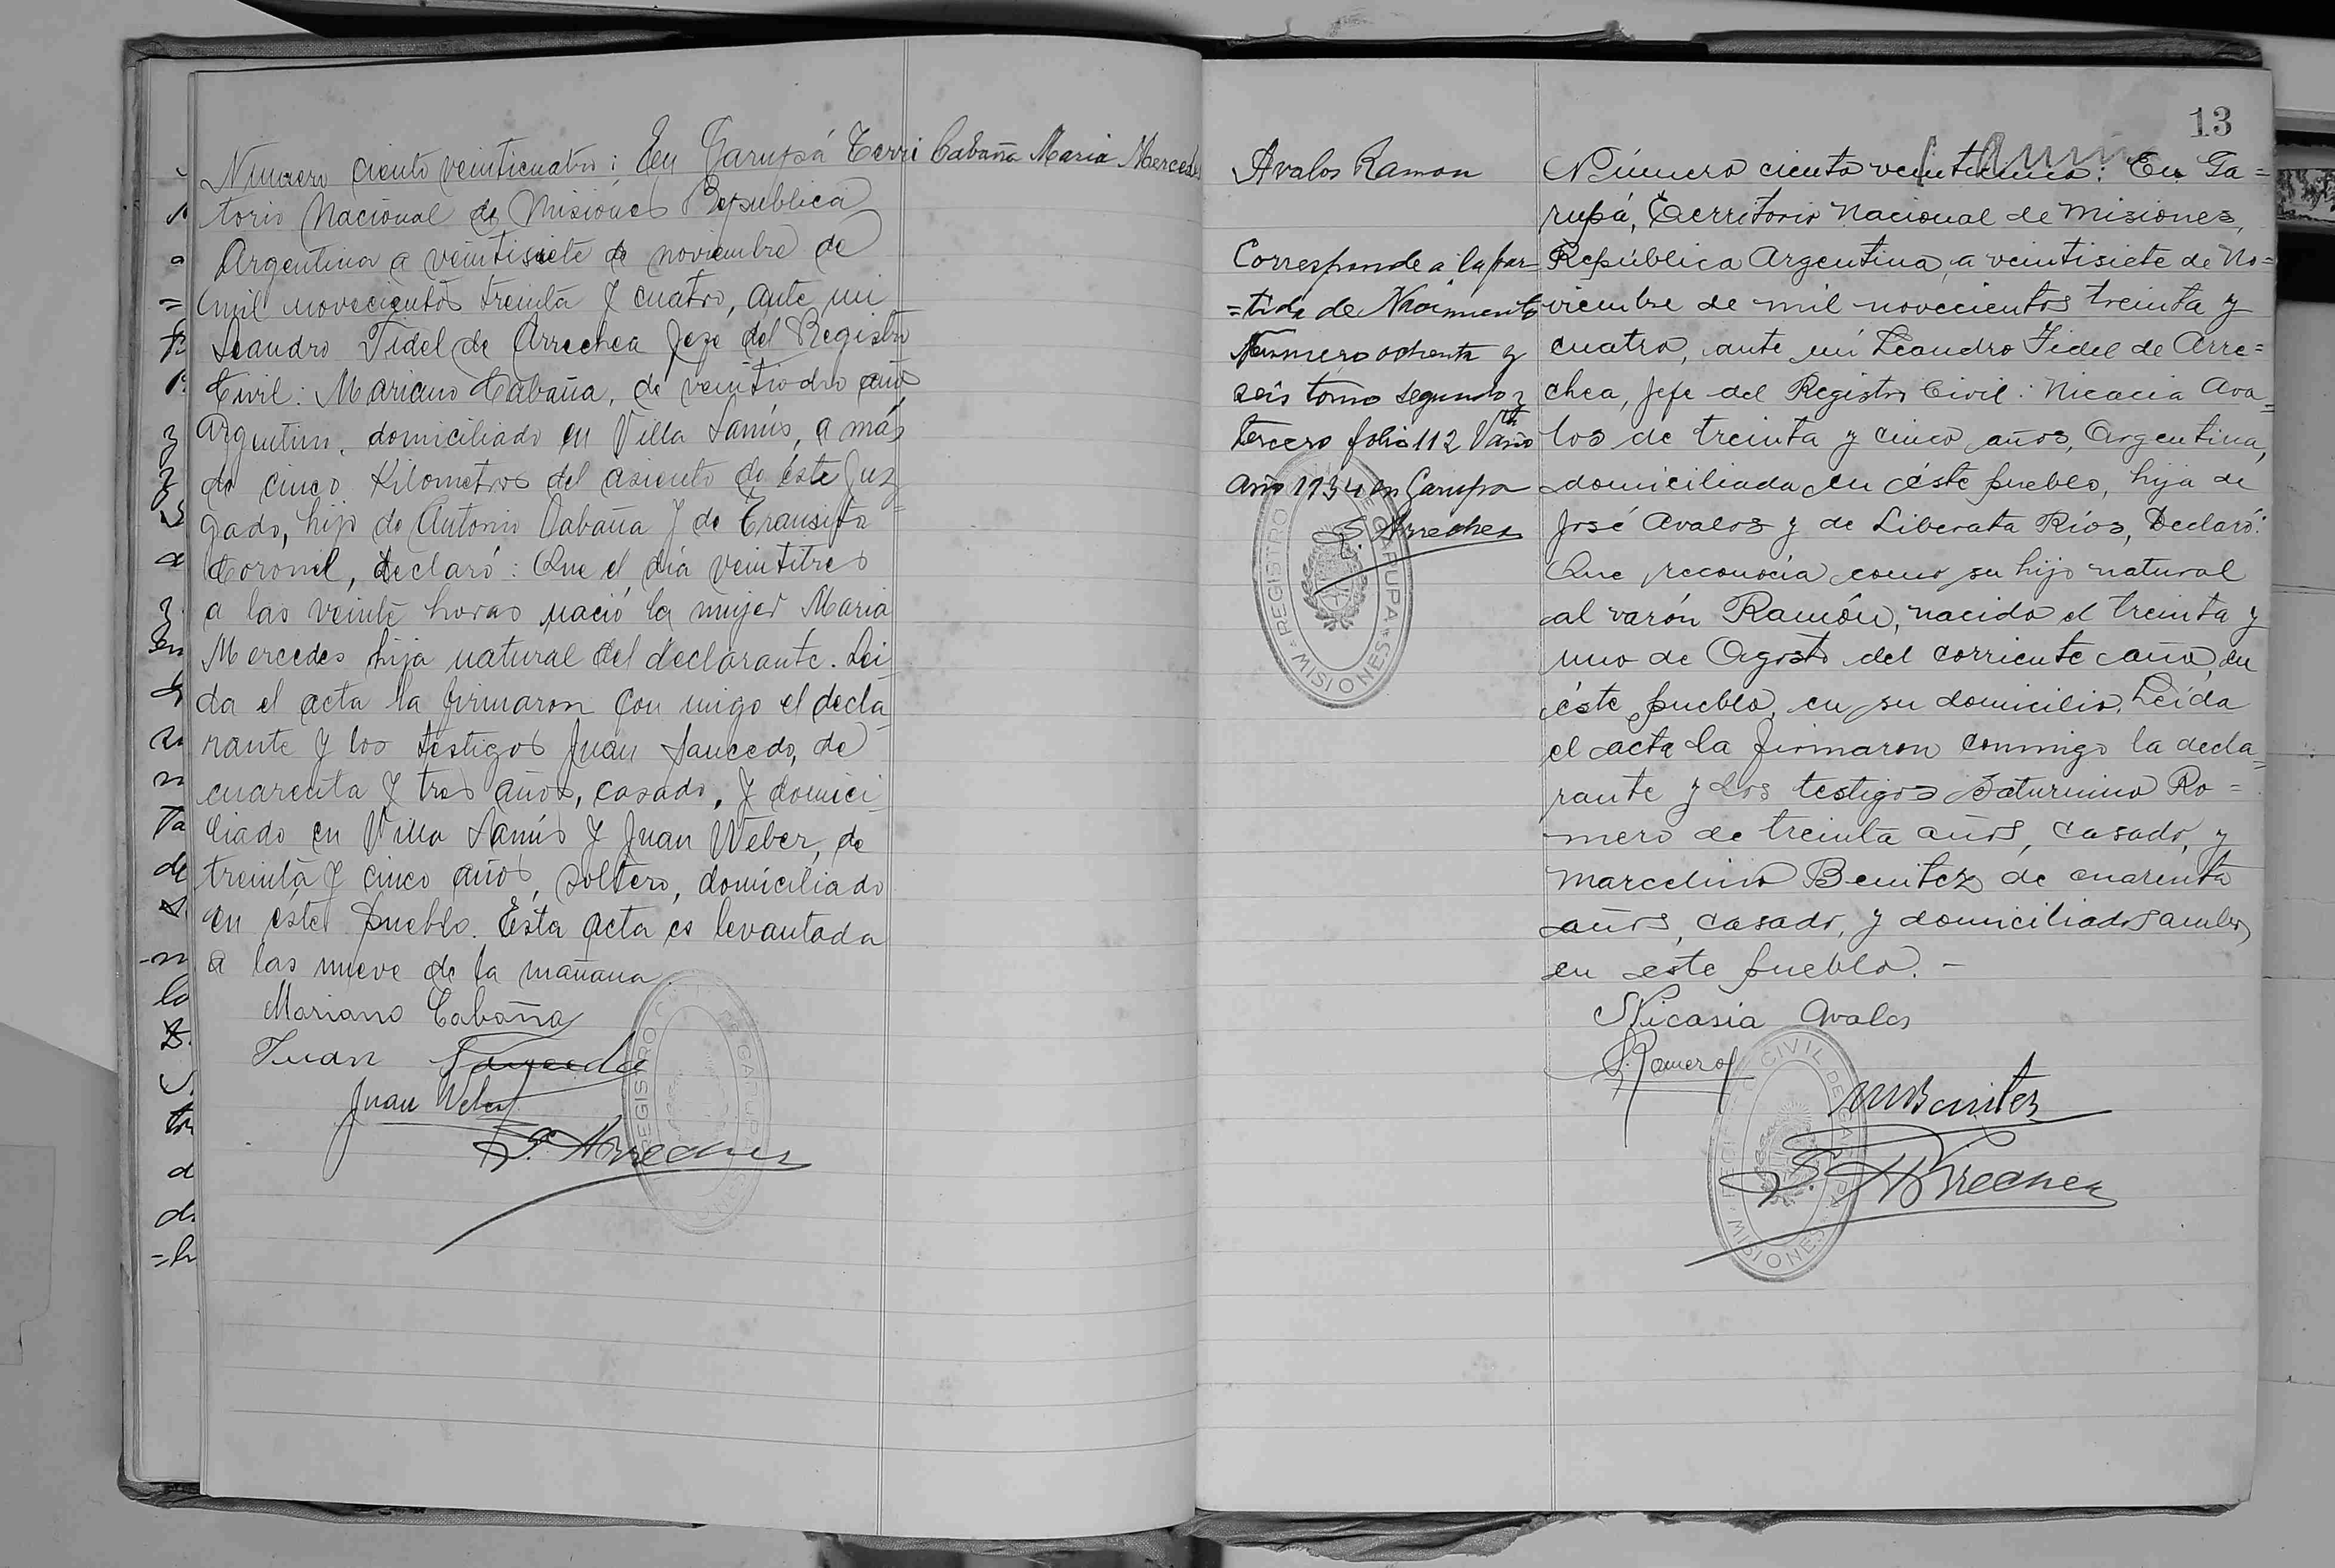 Cabaña Maria Mercedes
Número ciento veinticuatro: En Garupá Terri
torio Nacional de Misiones Republica
Argentina a veintisiete de noviembre de
mil novecientos treinta y cuatro, ante mi
Leandro Fidel de Arrechea Jefe del Registro
Civil: Mariano Cabaña, de veintiocho años
argentino, domiciliado en Villa Lanús, a más
de cinco Kilometros del asiento de éste Juz
gado, hijo de Antonio Cabaña y de Transito
Coronel, declaró: Que el día veintitres
a las veinte horas nació la mujer Maria
Mercedes hija natural del declarante. Lei
da el acta la firmaron con migo el decla
rante y los testigos Juan Saucedo, de
cuarenta y tres años, casado, y domici
liado en Villa Lanús y Juan Weber, de
treinta y cinco años, soltero, domiciliado
en éste pueblo. Esta acta es levantada
a las nueve de la mañana.
Mariano Cabaña
Juan Saucedo
Juan Weber
Arrechea
13
Avalos Ramon
Corresponde a la par
=tida de Nacimiento
Número ochenta y
seis tomo segundo y
tercero folio 112
año 1934 en Garupa
Arrechea
REGISTRO CIVIL DE GARUPA
MISIONES
Número ciento veinticinco: En Ga=
rupá, Territorio Nacional de Misiones,
República Argentina, a veintisiete de No=
viembre de mil novecientos treinta y
cuatro, ante mí Leandro Fidel de Arre=
chea, Jefe del Registro Civil: Nicacia Ava=
los de treinta y cinco años, Argentina,
domiciliada en éste pueblo, hija de
José Avalos y de Liberata Ríos, Declaró:
Que reconocía como su hijo natural
al varón Ramón, nacido el treinta y
uno de Agosto del corriente año, en
éste pueblo, en su domicilio. Leída
el acta la firmaron conmigo la decla=
rante y los testigos Saturnino Ro=
mero de treinta años, casado, y
Marcelino Benitez de cuarenta
años, casado, y domiciliados ambos
en este pueblo. -
Nicasia Avalos
S. Romero
M Benitez
Arrechea
REGISTRO CIVIL DE GARUPA
MISIONES